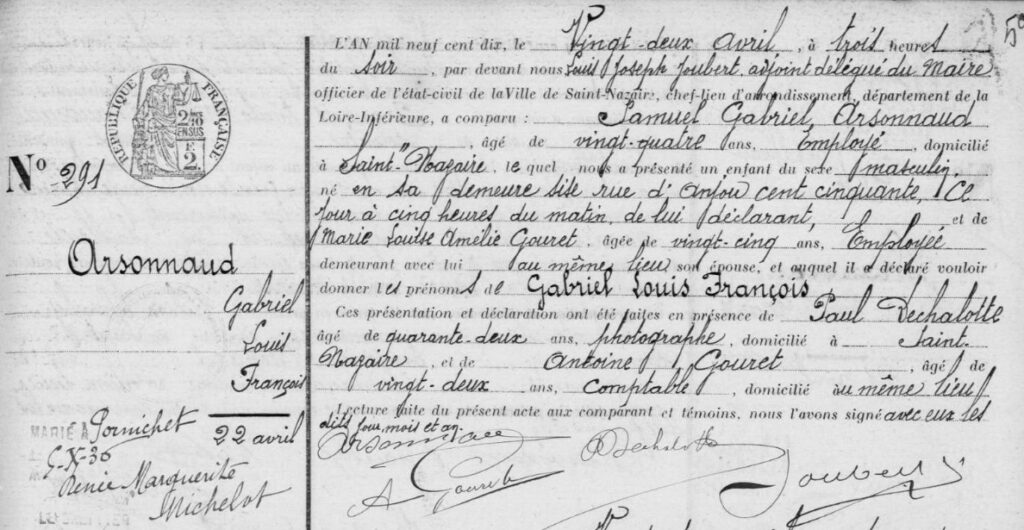 5
L'AN mil neuf cent dix, le Vingt-deux avril, à trois heures
du soir, par devant nous Louis Joseph Joubert, adjoint délégué du Maire
officier de l'état-civil de la Ville de Saint-Nazaire, chef-lieu d'arrondissement, département de la
Loire-Inférieure, a comparu : Samuel Gabriel Arsonnaud
, âgé de vingt-quatre ans, Employé, domicilié
à Saint-Nazaire, lequel nous a présenté un enfant du sexe masculin,
né en sa demeure sise rue d'Anjou cent cinquante, Ce
jour à cinq heures du matin, de lui déclarant, et de
Marie Louise Amélie Gouret, âgée de vingt-cinq ans, Employée
demeurant avec lui au même lieu son épouse, et auquel il a déclaré vouloir
donner les prénoms de Gabriel Louis François
Ces présentation et déclaration ont été faites en présence de Paul Dechalotte
âgé de quarante-deux ans, photographe, domicilié à Saint-
Nazaire, et de Antoine Gouret, âgé de
vingt-deux ans, comptable, domicilié au même lieu
Lecture faite du présent acte aux comparant et témoins, nous l'avons signé avec eux les
dits jour, mois et an.
Arsonnaud
Dechalotte
A Gouret
Joubert
RÉPUBLIQUE FRANÇAISE
2/10 EN SUS
F. 2
No 291
Arsonnaud
Gabriel
Louis
François
22 avril
MARIÉ A Pornichet
Renée Marguerite
Michelot